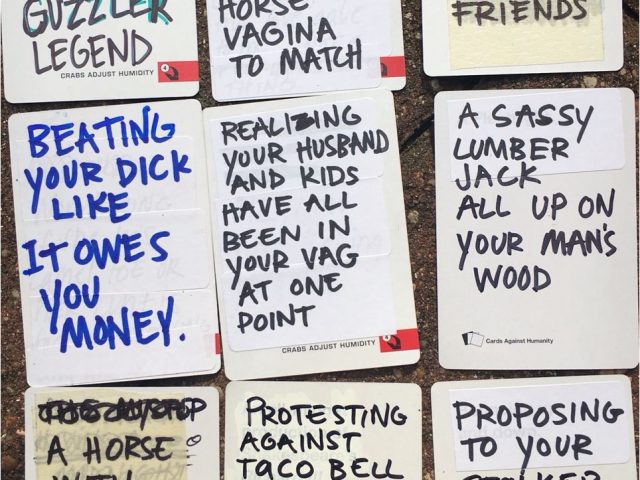 GUZZLER
LEGEND
CRABS ADJUST HUMIDITY
4
HORSE
VAGINA
TO MATCH
FRIENDS
BEATING
YOUR DICK
LIKE
IT OWES
YOU
MONEY.
REALIZING
YOUR HUSBAND
AND KIDS
HAVE ALL
BEEN IN
YOUR VAG
AT ONE
POINT
CRABS ADJUST HUMIDITY
4
A SASSY
LUMBER
JACK
ALL UP ON
YOUR MAN'S
WOOD
Cards Against Humanity
A HORSE
WITH
PROTESTING
AGAINST
TACO BELL
PROPOSING
TO YOUR
STALKER